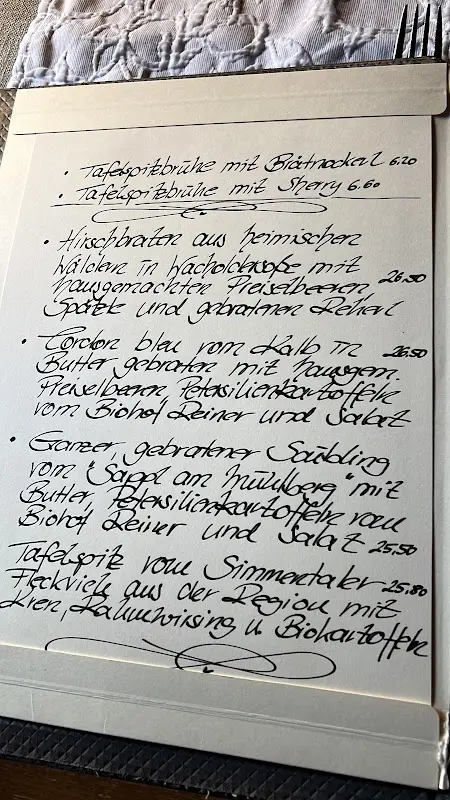 • Tafelspitzbrühe mit Brätnockerl 6.20
• Tafelspitzbrühe mit Sherry 6.60
• Hirschbraten aus heimischen
Wäldern in Wacholdersoße mit
hausgemachten Preiselbeeren, 26.50
Spätzle und gebratenen Reherl
• Cordon bleu vom Kalb in 26.50
Butter gebraten mit hausgem.
Preiselbeeren, Petersilienkartoffeln
vom Biohof Reiner und Salat
• Ganzer, gebratener Saibling
vom "Sappl am Mühlberg" mit
Butter, Petersilienkartoffeln vom
Biohof Reiner und Salat 25,50
Tafelspitz vom Simmentaler 25,80
Fleckvieh aus der Region mit
Kren, Rahmwirsing u. Biokartoffeln